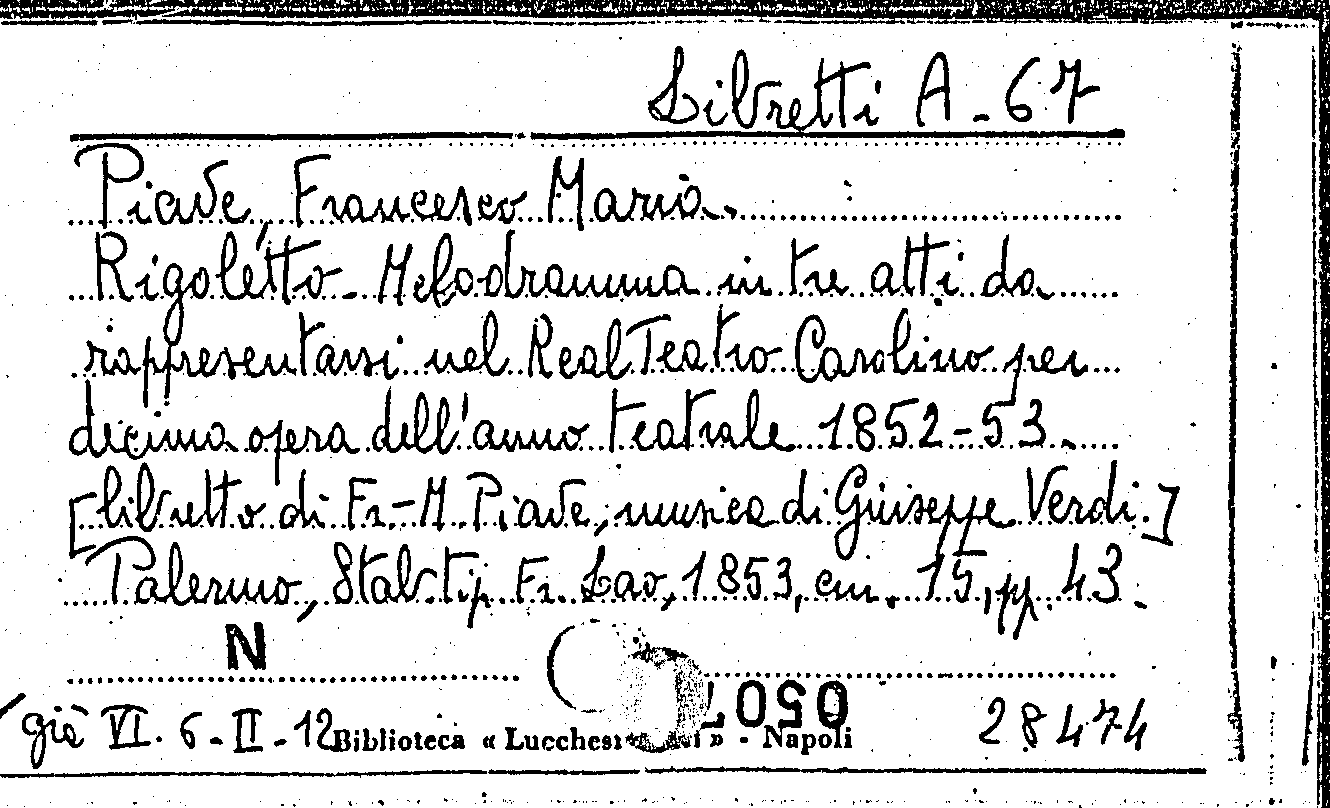 Libretti A-67
Piave, Francesco Maria.
Rigoletto - Melodramma in tre atti da
rappresentarsi nel Real Teatro Carolino per
decima opera dell'anno teatrale 1852-53.
[libretto di Fr.-M. Piave, musica di Giuseppe Verdi.]
Palermo, Stab. Tip. Fr. Lao, 1853, cm. 15, pp. 43.
N
già VI. 6-II-12
Biblioteca « » - Napoli
28474